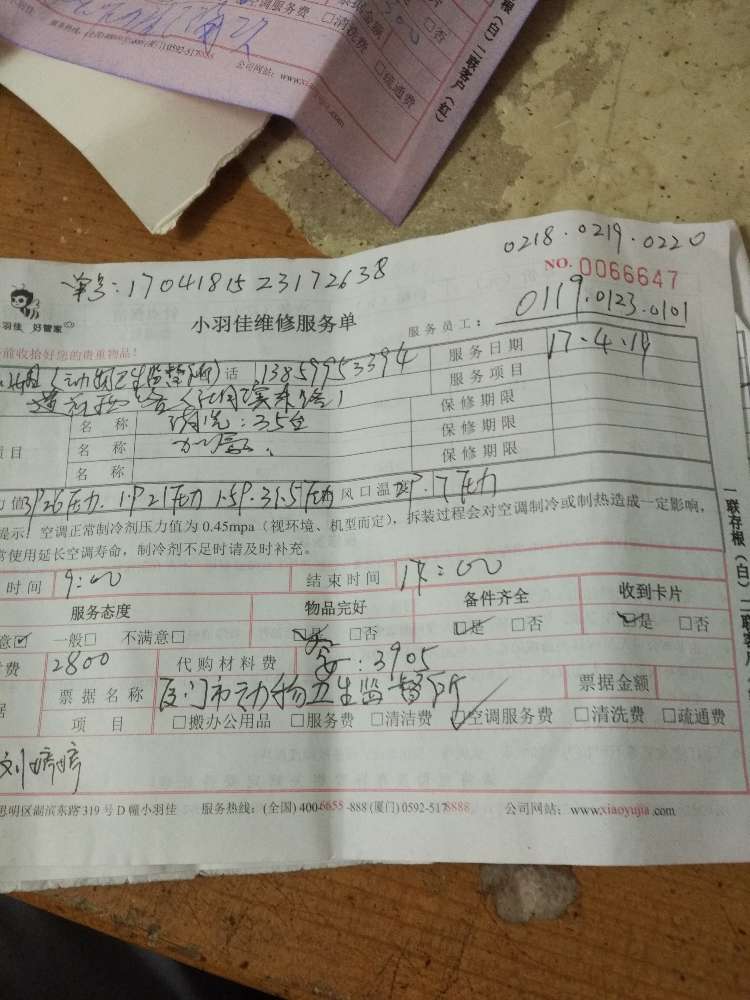 空调服务费 □清洗费
票据金额
□否
□疏通费
公司网站：www.xiaoyujia.com
存根（白）二联客户（红）
0218.0219.0220
单号：17041815 23172638
NO. 0066647
0119.0123.0101
羽佳 好管家
小羽佳维修服务单
服务员工：
前收拾好您的贵重物品！
（动物卫生监督所）话 13859953394 服务日期 17.4.19
服务项目
项目 名 称 清洗：35台 保修期限
名 称 加氨、 保修期限
名 称 保修期限
力值 3P26压力 1P21压力 1.5P.31.5压力 风口温 2P.17压力
提示：空调正常制冷剂压力值为 0.45mpa（视环境、机型而定），拆装过程会对空调制冷或制热造成一定影响，
常使用延长空调寿命，制冷剂不足时请及时补充。
时间 9:00 结束时间 17:00
服务态度 物品完好 备件齐全 收到卡片
意☑ 一般□ 不满意□ □是 □否 □是 □否 ☑是 □否
费 2800 代购材料费 ：3905
据 票据名称 厦门市动物卫生监督所 票据金额
项 目 □搬办公用品 □服务费 □清洁费 ☑空调服务费 □清洗费 □疏通费
刘婷婷
思明区湖滨东路 319 号 D 幢小羽佳 服务热线：(全国) 400-6655-888 (厦门) 0592-5178888 公司网站：www.xiaoyujia.com
一联存根（白）二联客